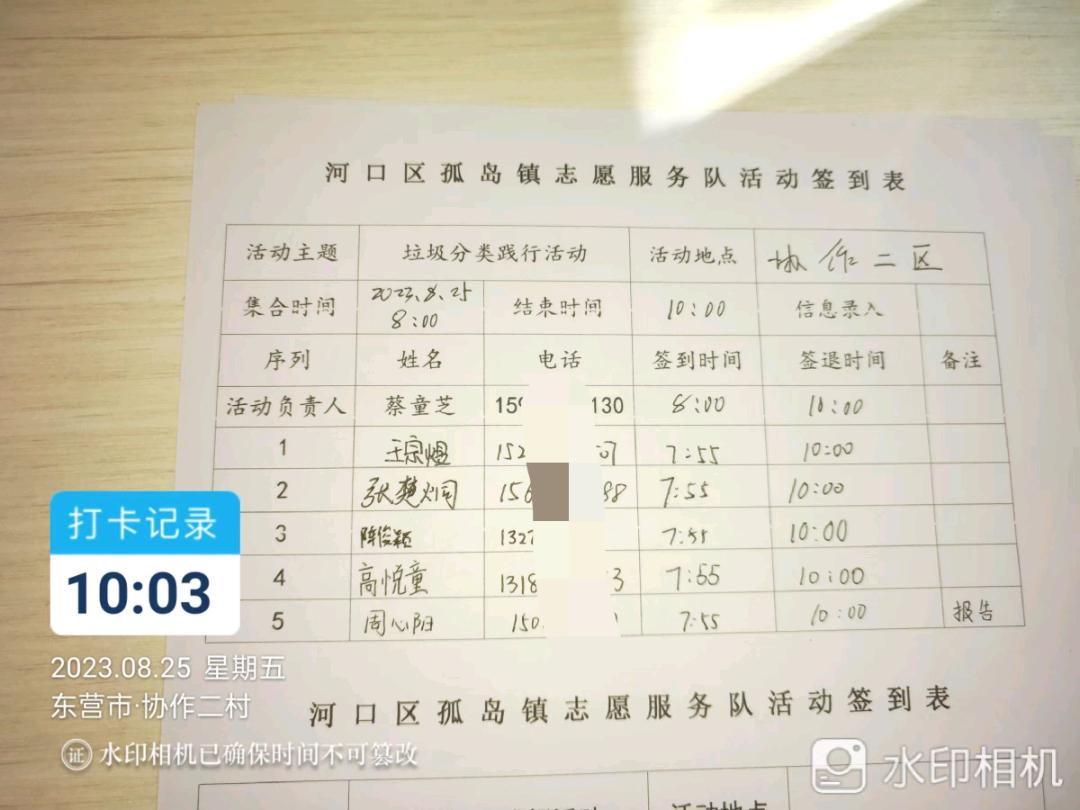 河口区孤岛镇志愿服务队活动签到表
活动主题 垃圾分类践行活动 活动地点 协作二区
集合时间 2023.8.25 8:00 结束时间 10:00 信息录入
序列 姓名 电话 签到时间 签退时间 备注
活动负责人 蔡童芝 159 130 8:00 10:00
1 王宗煜 152 7:55 10:00
2 张楚炯 156 88 7:55 10:00
3 陈俊颖 1327 7:55 10:00
4 高悦童 1318 3 7:55 10:00
5 周心阳 150 7:55 10:00 报告
打卡记录
10:03
2023.08.25 星期五
东营市·协作二村
证 水印相机已确保时间不可篡改
河口区孤岛镇志愿服务队活动签到表
水印相机
活动地点